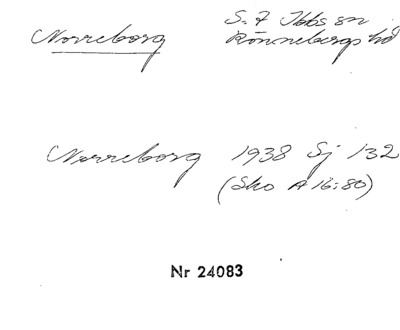 Norreborg
S. t Ibbs sn
Rönnebergs hd
Norreborg 1938 Sj 132
(Sko A 16:80)
Nr 24083